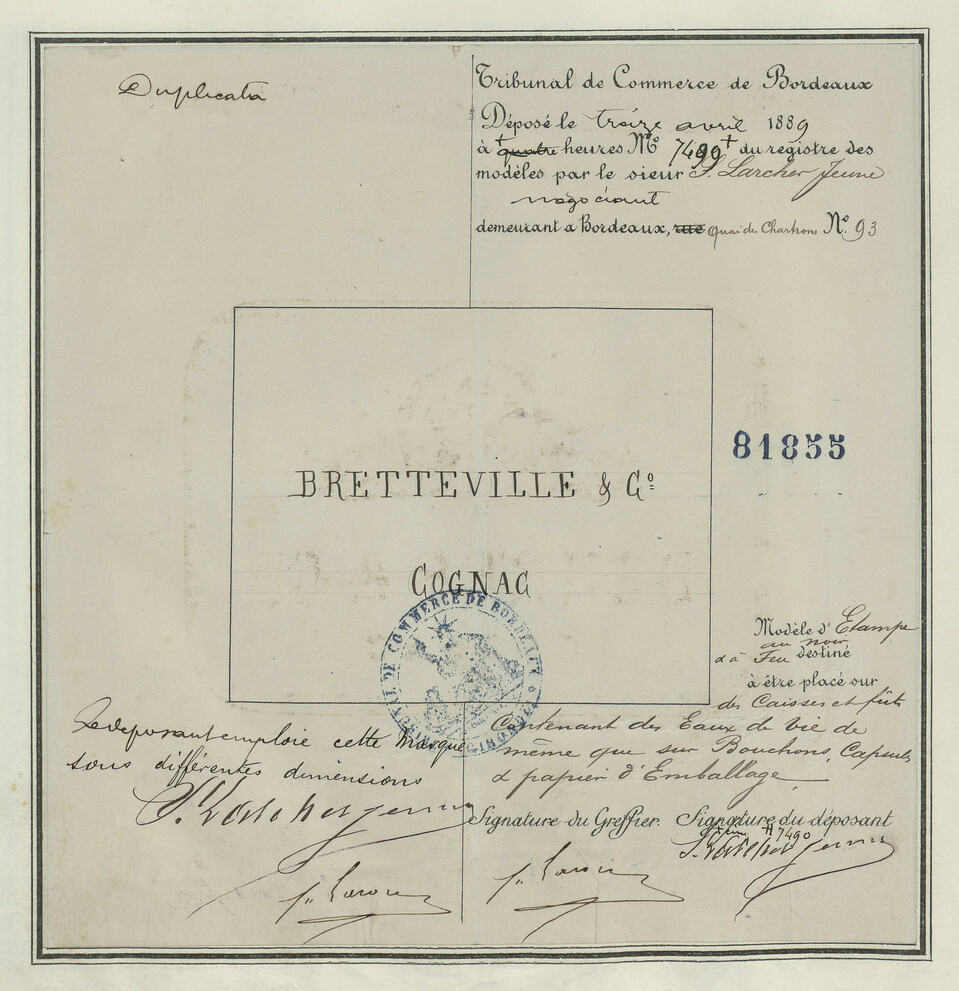 Duplicata
Tribunal de Commerce de Bordeaux
Déposé le treize avril 1889
à quatre heures No 7490 du registre des
modèles par le sieur S. Larcher Jeune
négociant
demeurant a Bordeaux, rue Quai des Chartrons No. 93
BRETTEVILLE & Co
COGNAC
81855
TRIBUNAL DE COMMERCE DE BORDEAUX
GIRONDE
Modèle d'Etampe
au noir
& à Feu destiné
à être placé sur
des Caisses et fûts
Contenant des Eaux de vie de
même que sur Bouchons, Capsules
& papier d'Emballage
Le deposant emploie cette Marque
sous différentes dimensions
S. Larcher jeune
Signature du Greffier. Signature du déposant
7490
S. Larcher jeune